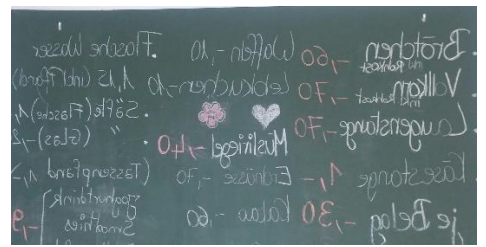 Brötchen -,60
mit Rohkost
Vollkorn -,70
inkl. Rohkost
Laugenstange -,70
Käsestange 1,-
je Belag -,30
Waffeln -,10
Lebkuchen -,10
Müsliriegel -,40
Erdnüsse -,70
Kakao -,60
. Flasche Wasser
(inkl. Pfand) 1,15
. Säfte (Flasche) 1,
" (Glas) -,2
(Tassenpfand 1,-)
Joghurtdrink
Smoothies -,9